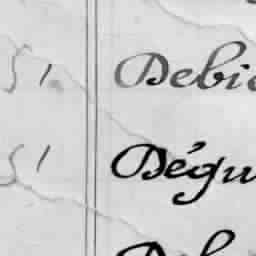 51 Debi
51 Dégu